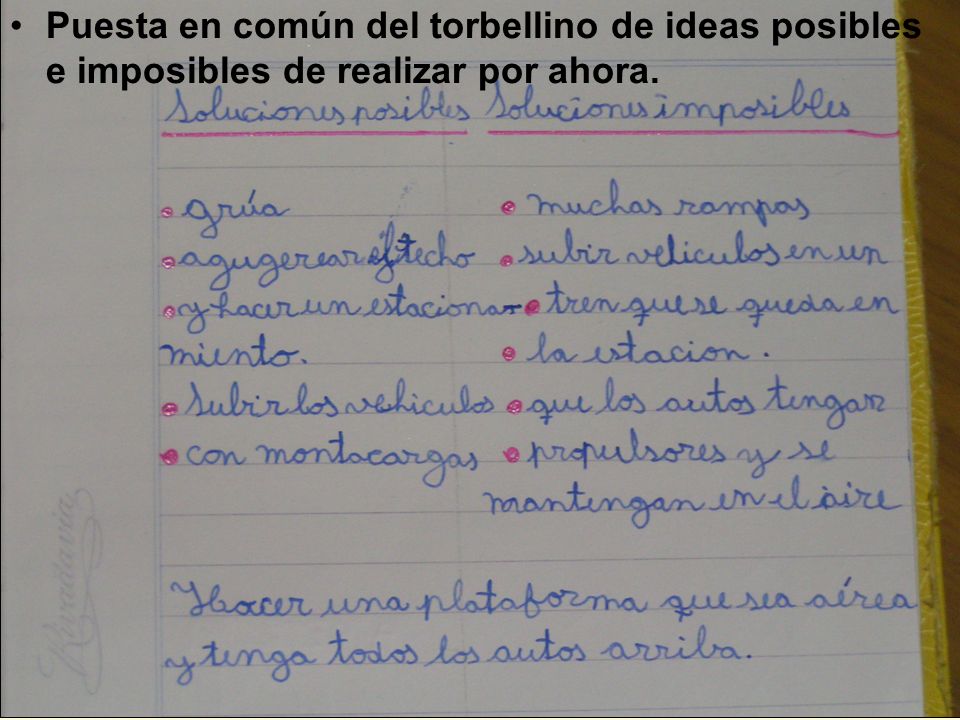 • Puesta en común del torbellino de ideas posibles
e imposibles de realizar por ahora.
Soluciones posibles
• grúa
• agugerear el techo
• y hacer un estaciona-
miento.
• Subir los vehiculos
• con montacargas
Soluciones imposibles
• muchas rampas
• subir vehiculos en un
• tren que se queda en
• la estacion.
• que los autos tengan
• propulsores y se
mantengan en el aire
Hacer una plataforma que sea aérea
y tenga todos los autos arriba.
Rivadavia